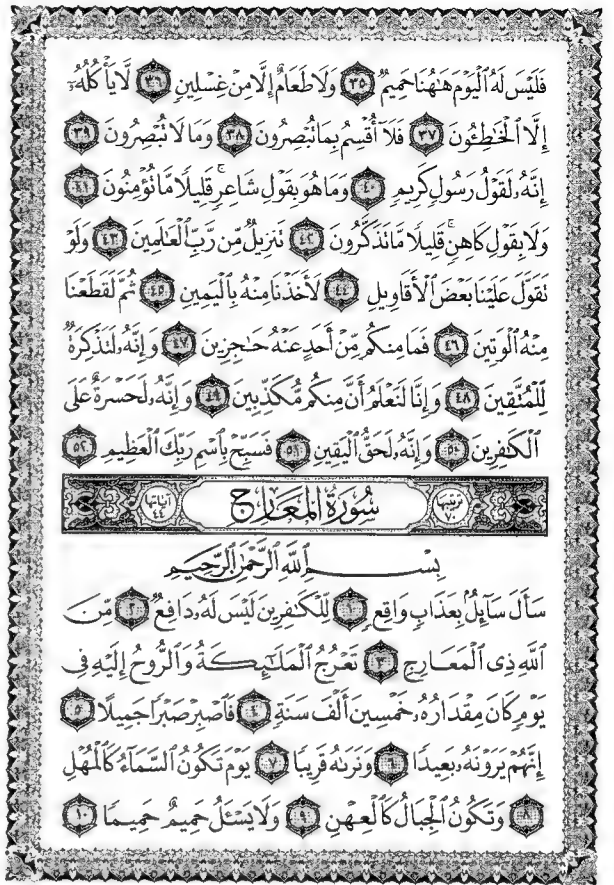 فَلَيْسَ لَهُ الْيَوْمَ هَاهُنَا حَمِيمٌ ٣٥ وَلَا طَعَامٌ إِلَّا مِنْ غِسْلِينٍ ٣٦ لَّا يَأْكُلُهُ
إِلَّا الْخَاطِئُونَ ٣٧ فَلَا أُقْسِمُ بِمَا تُبْصِرُونَ ٣٨ وَمَا لَا تُبْصِرُونَ ٣٩
إِنَّهُ لَقَوْلُ رَسُولٍ كَرِيمٍ ٤٠ وَمَا هُوَ بِقَوْلِ شَاعِرٍ ۚ قَلِيلًا مَّا تُؤْمِنُونَ ٤١
وَلَا بِقَوْلِ كَاهِنٍ ۚ قَلِيلًا مَّا تَذَكَّرُونَ ٤٢ تَنزِيلٌ مِّن رَّبِّ الْعَالَمِينَ ٤٣ وَلَوْ
تَقَوَّلَ عَلَيْنَا بَعْضَ الْأَقَاوِيلِ ٤٤ لَأَخَذْنَا مِنْهُ بِالْيَمِينِ ٤٥ ثُمَّ لَقَطَعْنَا
مِنْهُ الْوَتِينَ ٤٦ فَمَا مِنكُم مِّنْ أَحَدٍ عَنْهُ حَاجِزِينَ ٤٧ وَإِنَّهُ لَتَذْكِرَةٌ
لِّلْمُتَّقِينَ ٤٨ وَإِنَّا لَنَعْلَمُ أَنَّ مِنكُم مُّكَذِّبِينَ ٤٩ وَإِنَّهُ لَحَسْرَةٌ عَلَى
الْكَافِرِينَ ٥٠ وَإِنَّهُ لَحَقُّ الْيَقِينِ ٥١ فَسَبِّحْ بِاسْمِ رَبِّكَ الْعَظِيمِ ٥٢
ترتيبها ٧٠ سُورَةُ الْمَعَارِجِ آياتها ٤٤
بِسْمِ اللَّهِ الرَّحْمَٰنِ الرَّحِيمِ
سَأَلَ سَائِلٌ بِعَذَابٍ وَاقِعٍ ١ لِّلْكَافِرِينَ لَيْسَ لَهُ دَافِعٌ ٢ مِّنَ
اللَّهِ ذِي الْمَعَارِجِ ٣ تَعْرُجُ الْمَلَائِكَةُ وَالرُّوحُ إِلَيْهِ فِي
يَوْمٍ كَانَ مِقْدَارُهُ خَمْسِينَ أَلْفَ سَنَةٍ ٤ فَاصْبِرْ صَبْرًا جَمِيلًا ٥
إِنَّهُمْ يَرَوْنَهُ بَعِيدًا ٦ وَنَرَاهُ قَرِيبًا ٧ يَوْمَ تَكُونُ السَّمَاءُ كَالْمُهْلِ
٨ وَتَكُونُ الْجِبَالُ كَالْعِهْنِ ٩ وَلَا يَسْئَلُ حَمِيمٌ حَمِيمًا ١٠